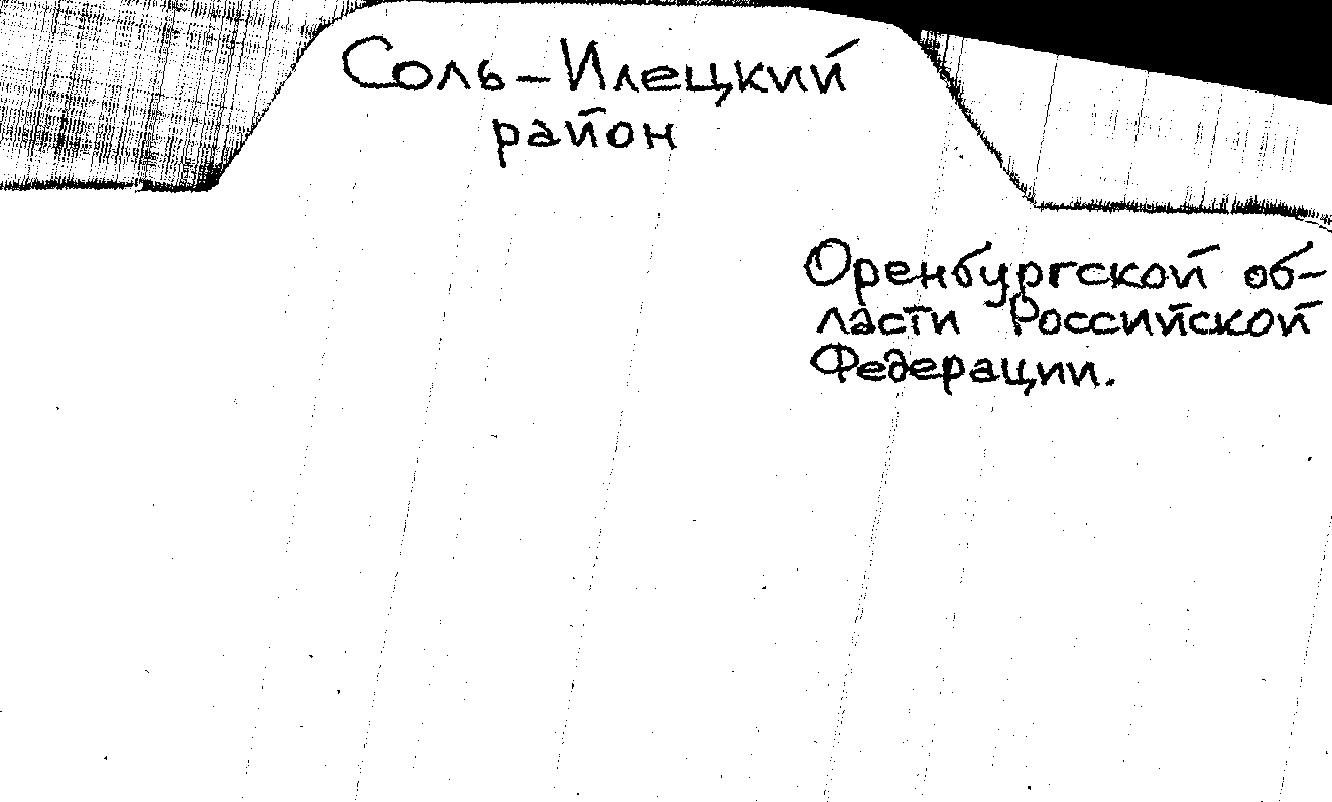 Соль-Илецкий
район
Оренбургской об-
ласти Российской
Федерации.